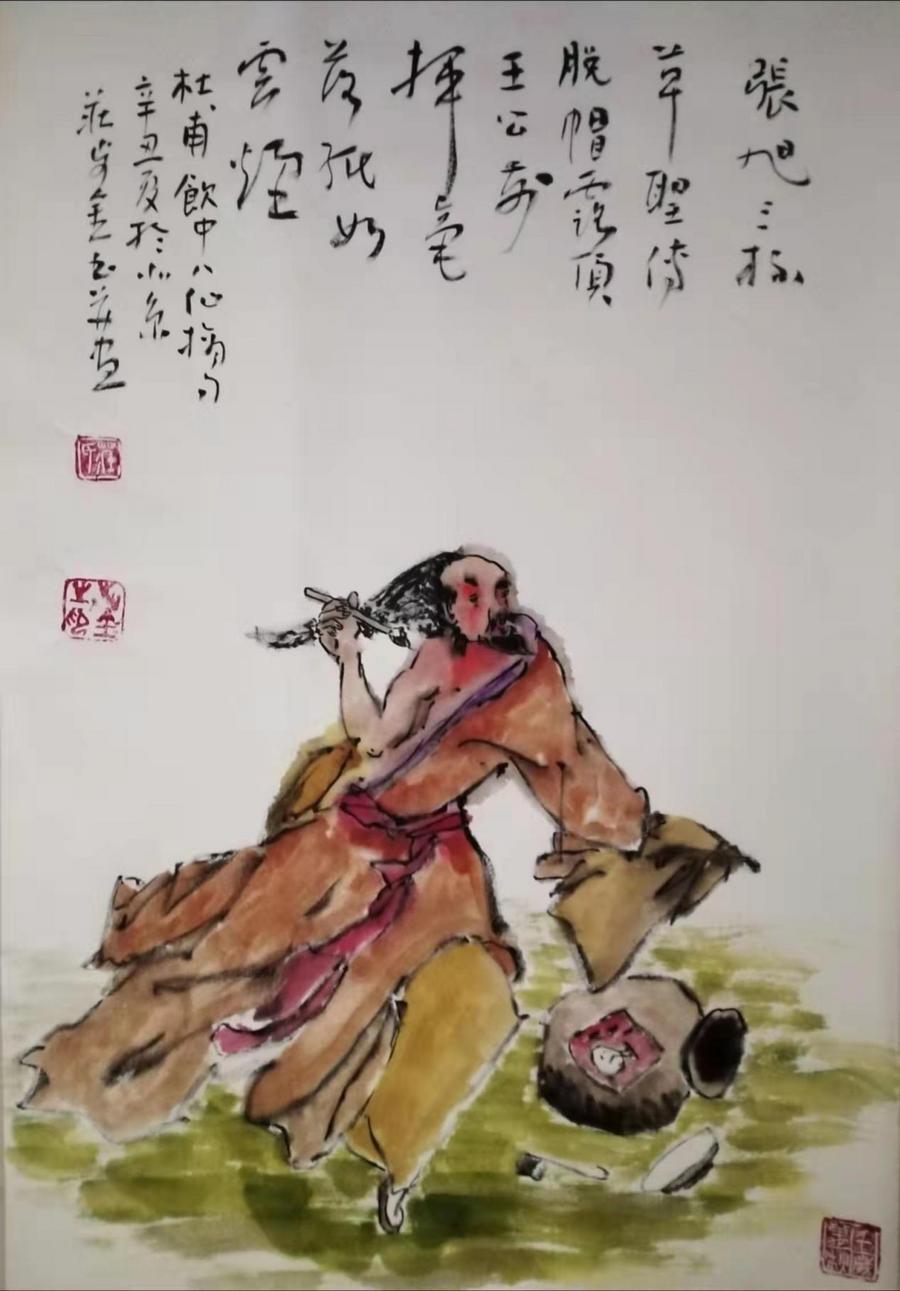 張旭三杯
草聖傳
脱帽露頂
王公前
揮毫
落紙如
雲煙
杜甫飲中八仙摘句
辛丑夏於北京
莊
金書並画